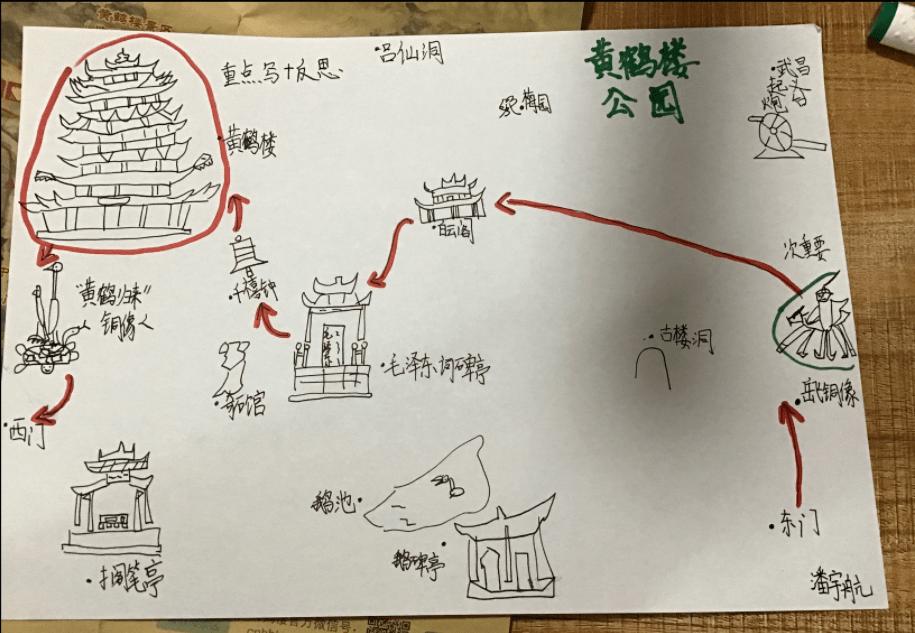 重点写+反思
吕仙洞
黄鹤楼
公园
武昌
起义
炮
梅园
黄鹤楼
白云阁
次重要
千禧钟
"黄鹤归来"
铜像
古楼洞
毛泽东词碑亭
奇石馆
岳飞铜像
西门
鹅池
东门
鹅碑亭
搁笔亭
潘宇航